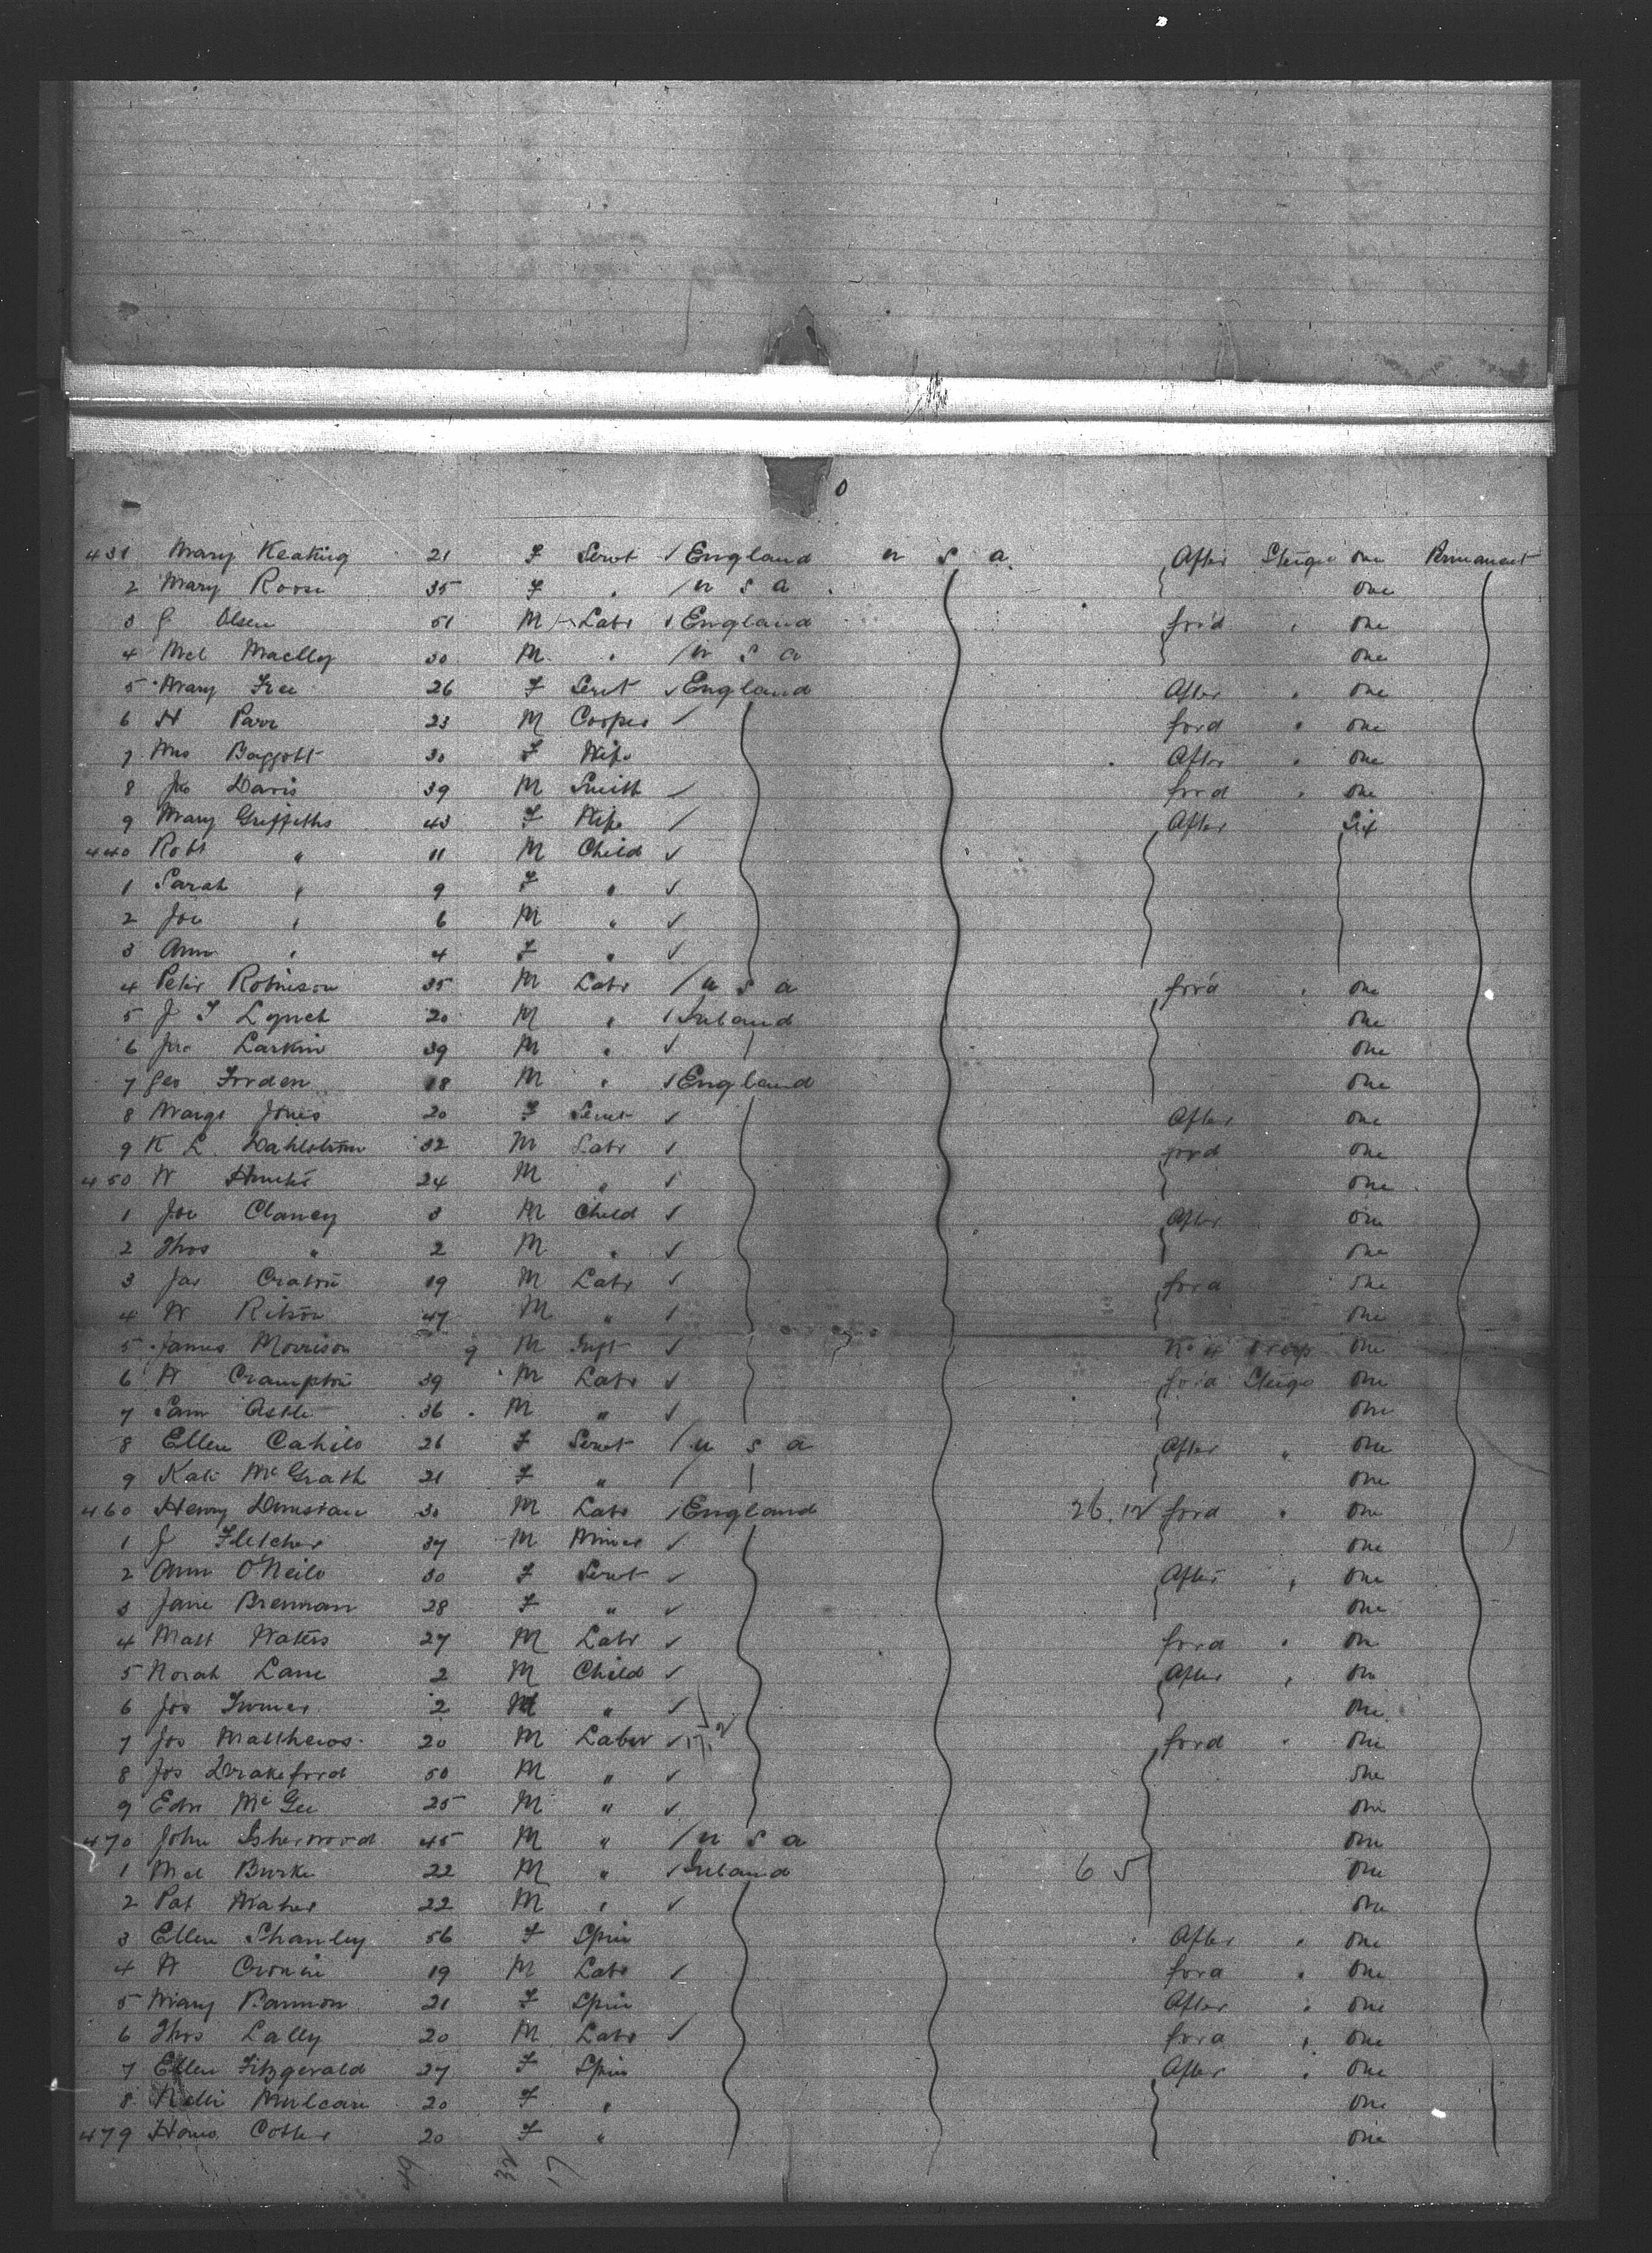 431 Mary Keating 21 F Servt / England U S A. After Steige one Permanent
2 Mary 35 F " / U S A one
3 G Olsen 51 M Labr / England for'd " one
4 Mcl 30 M " / U S A one
5 Mary Free 26 F Servt / England After " one
6 H Parr 23 M Cooper / ford " one
7 Mrs Baggott 30 F Wife After " one
8 Jno Davis 39 M Smith / ford " one
9 Mary Griffiths 43 F Wife / After Six
440 Robt " 11 M Child /
1 Sarah " 9 F " /
2 Joe " 6 M " /
3 Ann " 4 F " /
4 Peter Robinson 35 M Labr / U S A for'd " one
5 J S Lynch 20 M " / Ireland one
6 Jno Larkin 39 M " / one
7 Geo Forden 18 M " / England one
8 Margt Jones 20 F Servt / After one
9 K L. Dahlstrom 32 M Labr / ford one
450 W Hunter 24 M " / one
1 Joe Clancy 3 M Child / After one
2 Thos " 2 M " / one
3 Jas 19 M Labr / ford one
4 W Ritson 47 M " / one
5 James Morrison 9 M / No 4 one
6 W Crampton 39 M Labr / ford Steige one
7 Sam Astle 36 M " / one
8 Ellen Cahill 26 F Servt / U S A After " one
9 Kate McGrath 21 F " / one
460 Henry Dunstan 30 M Labr / England 26.12 ford " one
1 J Fletcher 37 M Miner / one
2 Ann O'Neill 30 F Servt / After " one
3 Jane Brennan 28 F " / one
4 Matt Waters 27 M Labr / ford " one
5 Norah Lane 2 M Child / After " one
6 Jos 2 M " / one
7 Jos Matthews 20 M Labor / ford " one
8 Jos Drakeford 50 M " / one
9 Edw McGee 25 M " / one
470 John Isherwood 45 M " / U S A one
1 Mcl Burke 22 M " / Ireland 6 5 one
2 Pat Maher 22 M " / one
3 Ellen Shanley 56 F Spin After " one
4 W Cronin 19 M Labr / ford " one
5 Mary Bannon 21 F Spin After " one
6 Thos Lally 20 M Labr / ford " one
7 Ellen Fitzgerald 27 F Spin After " one
8 Nelli Mulcare 20 F " one
479 Cotter 20 F " one
49 32 17